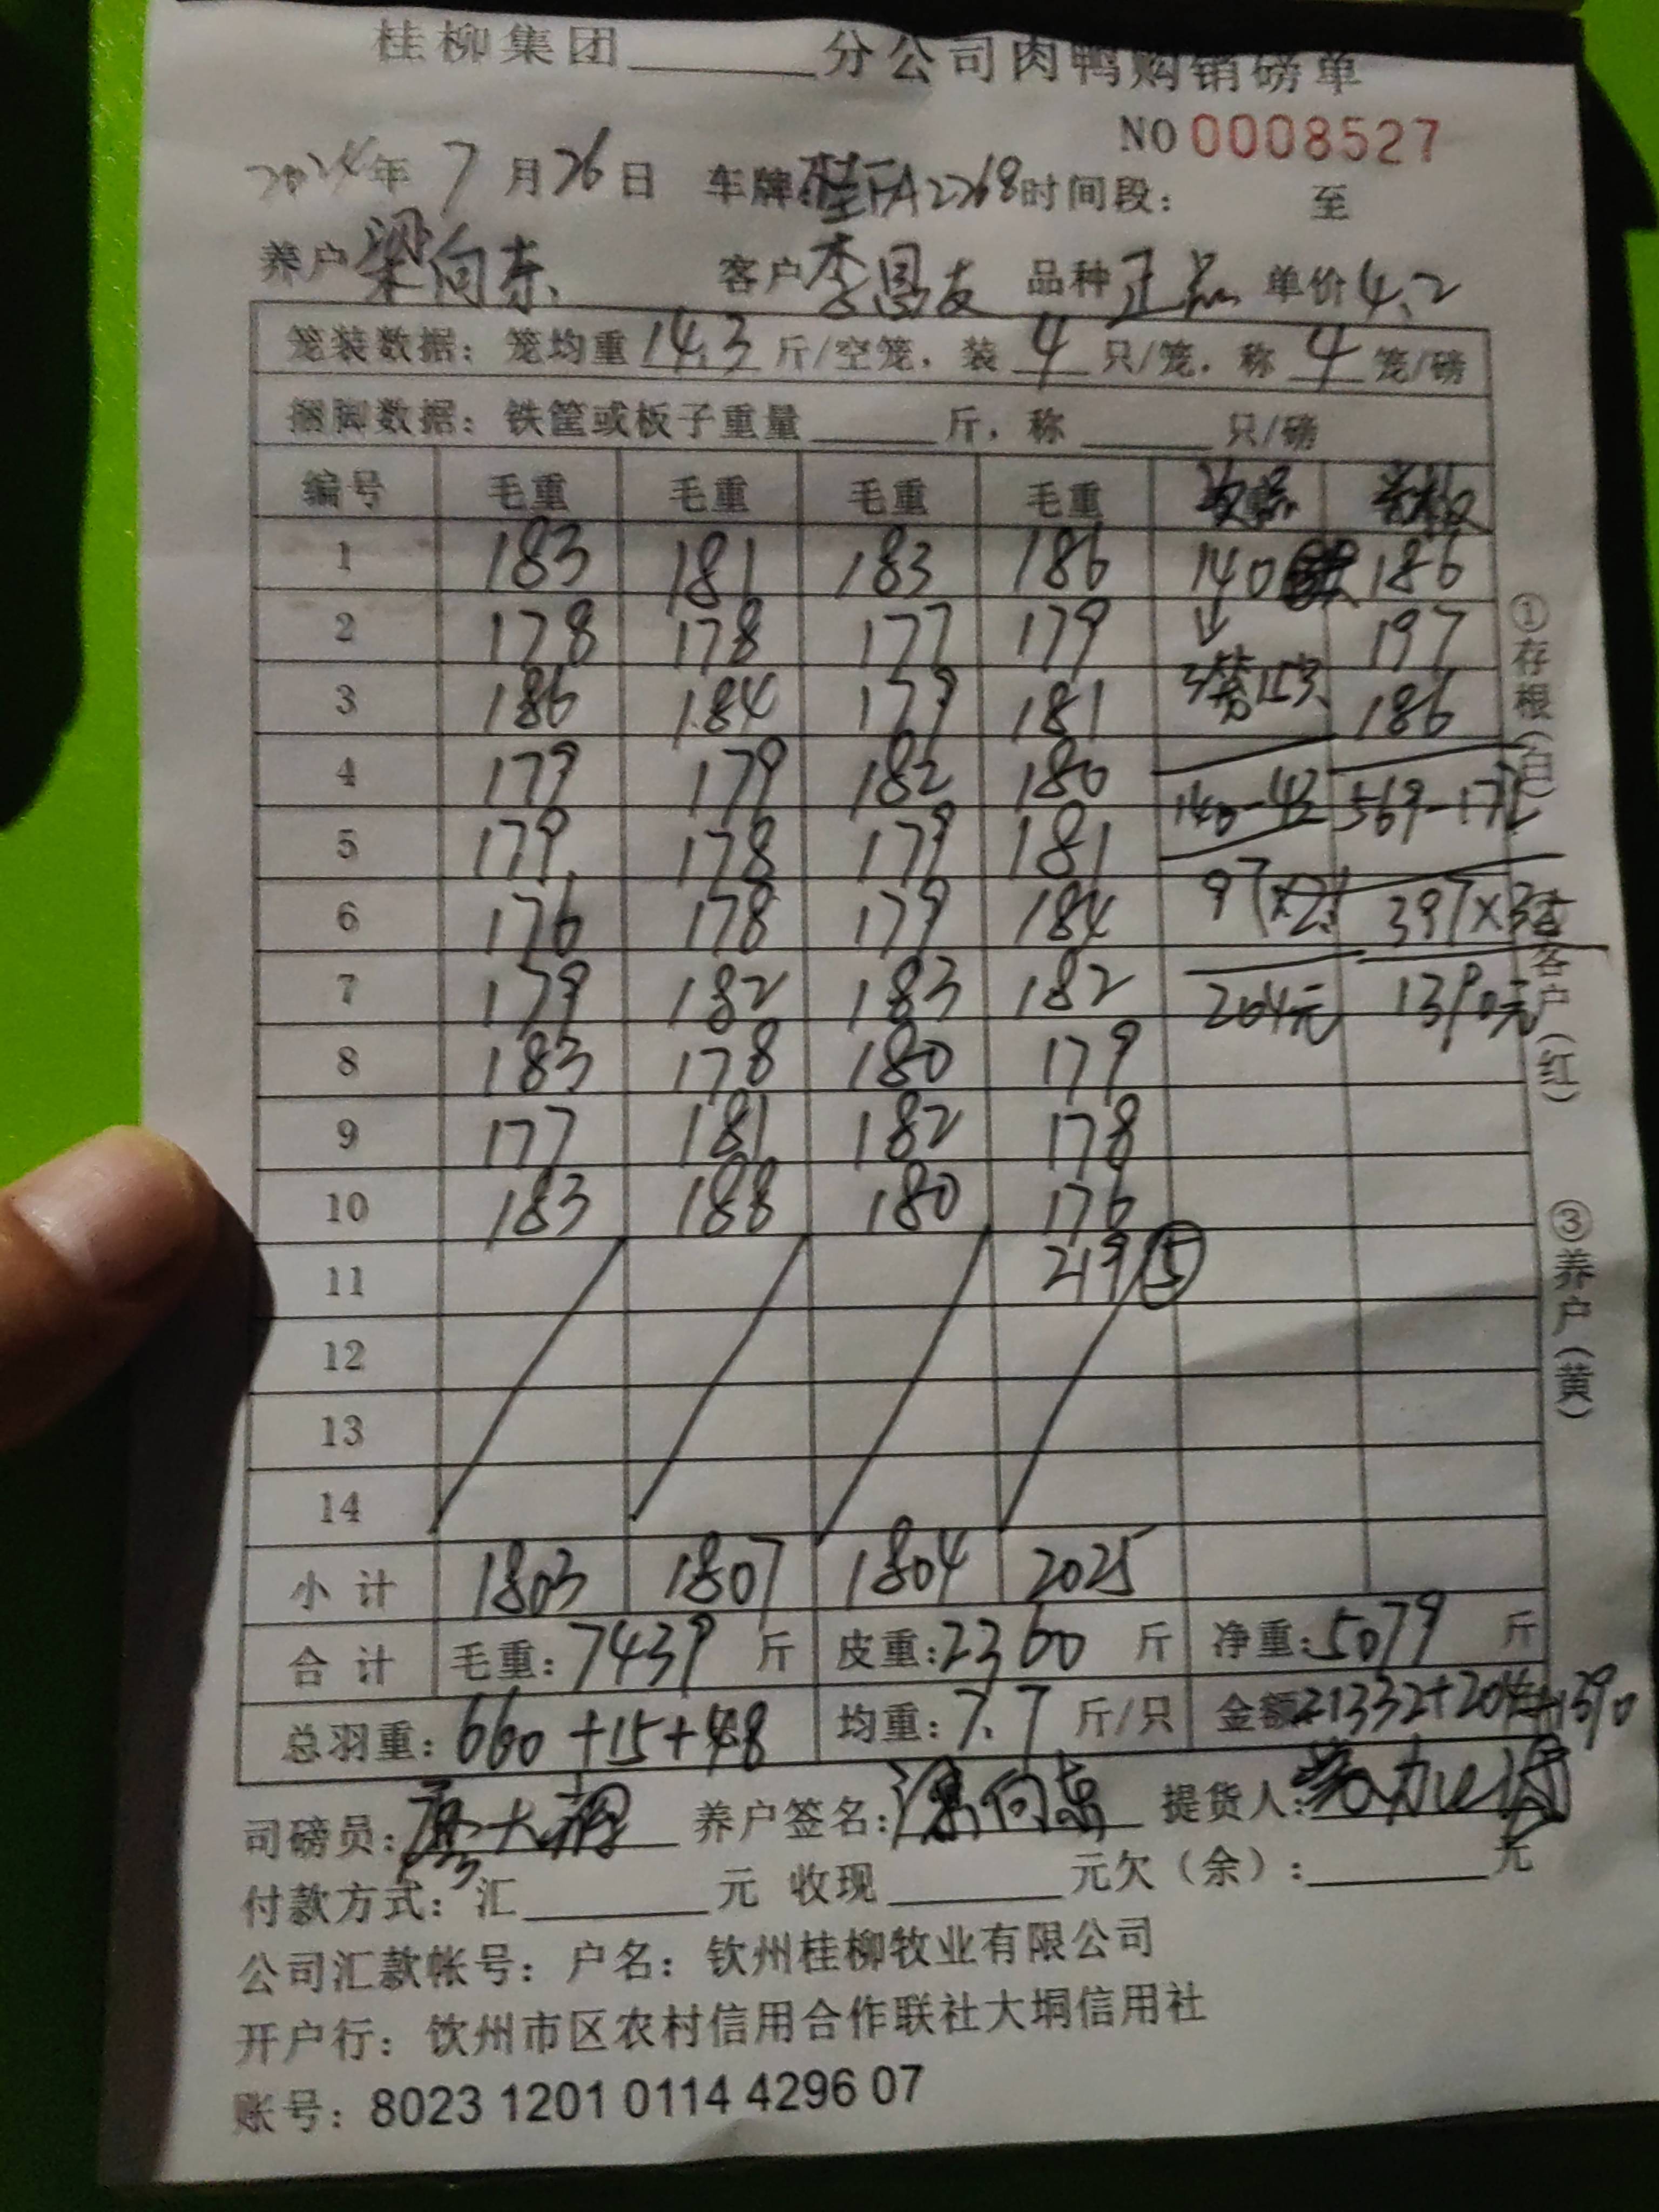 桂柳集团______分公司肉鸭购销磅单
NO 0008527
2024年 7 月 26 日 车牌:桂FA2268 时间段: 至
养户 梁向东 客户 李昌友 品种 正品 单价 4.2
笼装数据: 笼均重 14.3 斤/空笼, 装 4 只/笼, 称 4 笼/磅
捆脚数据: 铁筐或板子重量______斤, 称______只/磅
编号 毛重 毛重 毛重 毛重
1 183 181 183 186 140 186
2 178 178 177 179 ↓ 197
3 186 184 179 181 3笼15只 186
4 179 179 182 180 140-43 569-172
5 179 178 179 181
6 176 178 179 184 97×2.1 397×3.5
7 179 182 183 182 204元 1390元
8 183 178 180 179
9 177 181 182 178
10 183 188 180 176
11 219 ⑤
12
13
14
小计 1803 1807 1804 2025
合计 毛重:7439 斤 皮重:2360 斤 净重:5079 斤
总羽重: 660+15+48 均重:7.7 斤/只 金额:21332+204+1390
司磅员: 养户签名: 向东 提货人:
付款方式: 汇______元 收现______元欠(余):______元
公司汇款帐号: 户名: 钦州桂柳牧业有限公司
开户行: 钦州市区农村信用合作联社大垌信用社
账号: 8023 1201 0114 4296 07
①存根(白)
客户(红)
③养户(黄)